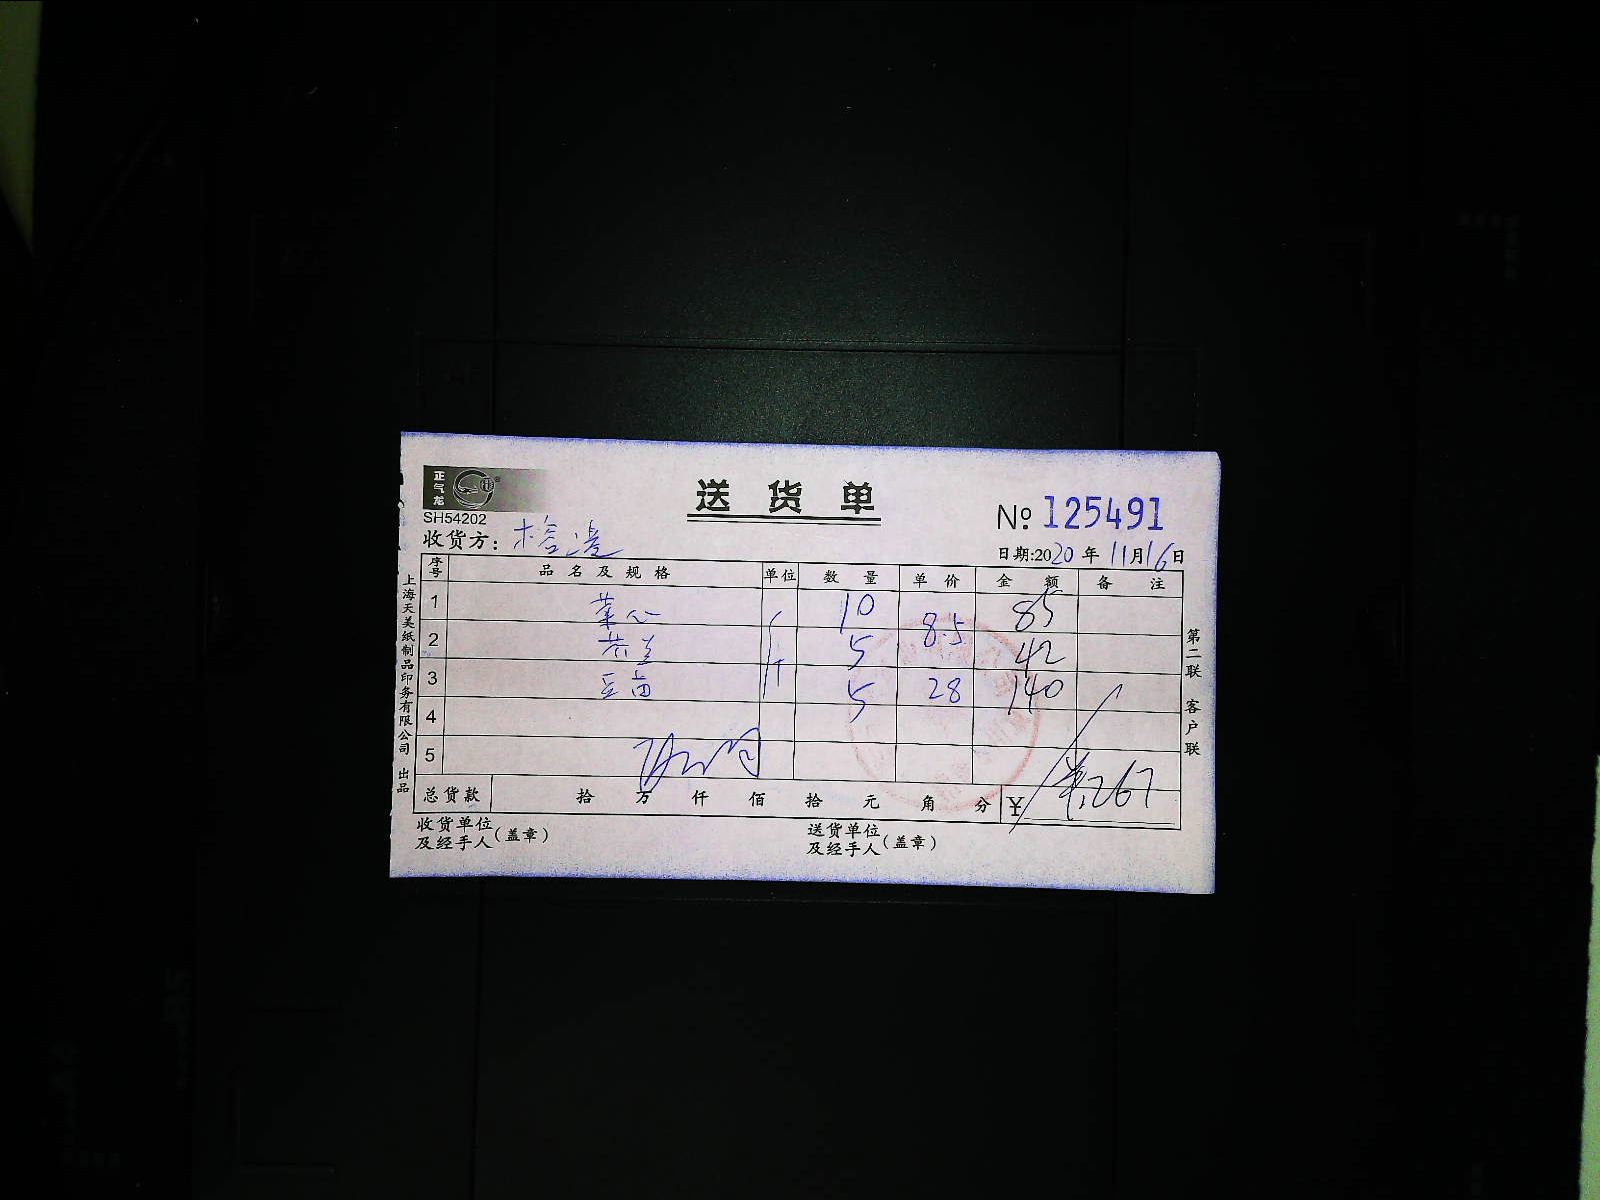 正气龙
SH54202
送货单
№ 125491
收货方:
日期:2020年11月16日
序号 品名及规格 单位 数量 单价 金额 备注
1 菜心 10 8.5 85
2 5 42
3 豆苗 5 28 140
4
5
总货款 拾 万 仟 佰 拾 元 角 分 ¥ 267
收货单位及经手人(盖章)
送货单位及经手人(盖章)
上海天美纸制品印务有限公司 出品
第二联 客户联